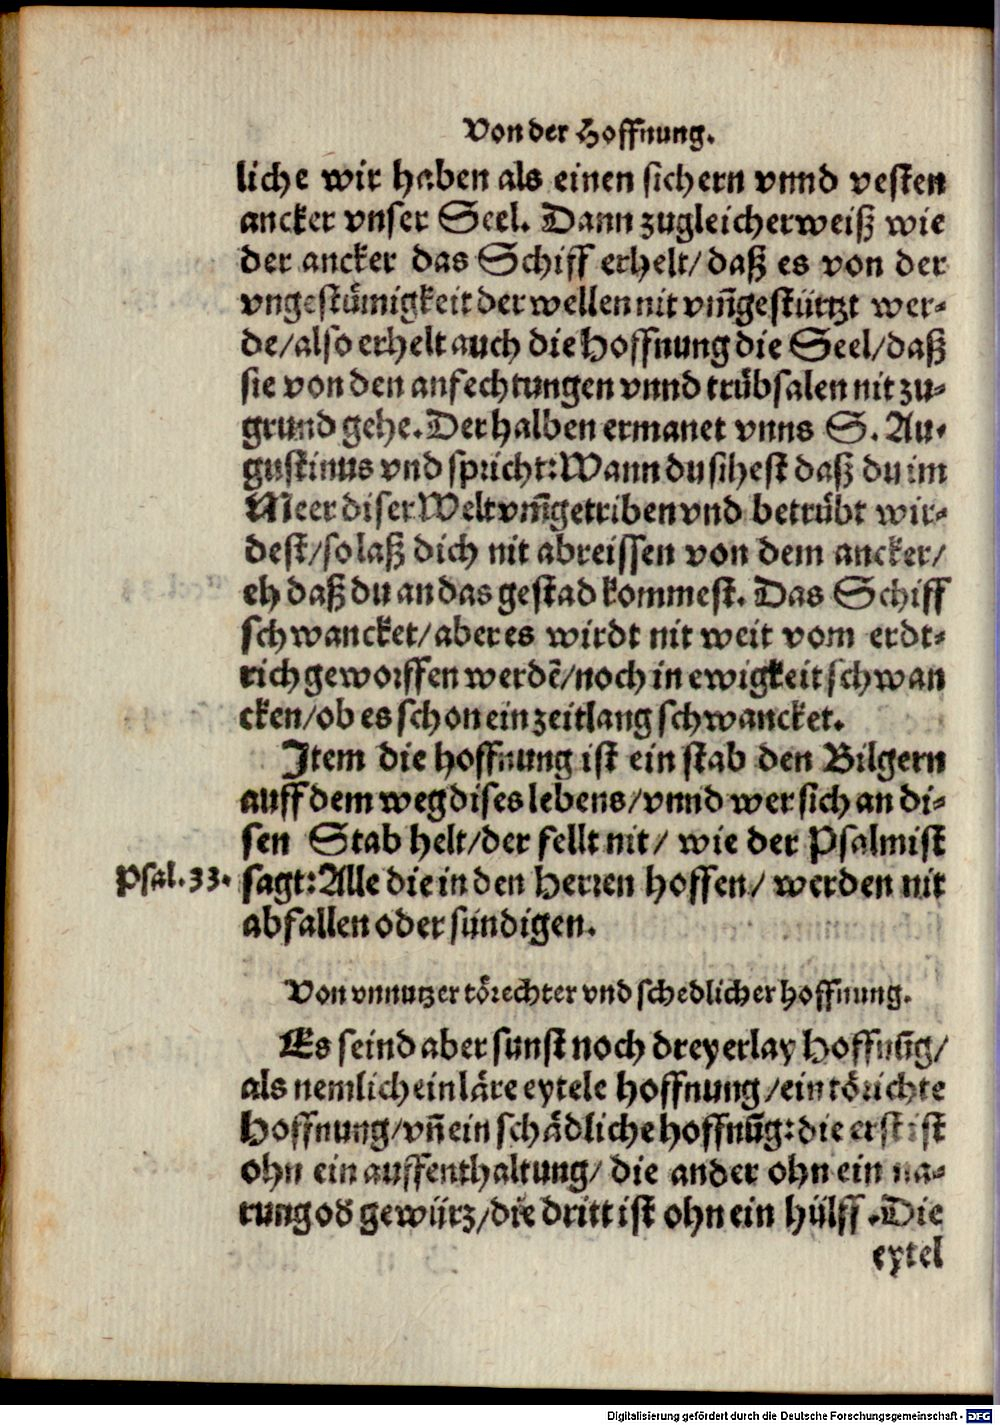 Von der Hoffnung.
liche wir haben als einen sichern vnnd vesten
ancker vnser Seel. Dann zugleicherweiß wie
der ancker das Schiff erhelt/ daß es von der
vngestůmigkeit der wellen nit vm̃gestürtzt wer-
de/ also erhelt auch die Hoffnung die Seel/ daß
sie von den anfechtungen vnnd trůbsalen nit zu-
grund gehe. Derhalben ermanet vnns S. Au-
gustinus vnd spricht: Wann du sihest daß du im
Meer diser Welt vm̃getriben vnd betrůbt wir-
dest/ so laß dich nit abreissen von dem ancker/
eh daß du an das gestad kommest. Das Schiff
schwancket/ aber es wirdt nit weit vom erdt-
rich geworffen werdẽ/ noch in ewigkeit schwan
cken/ ob es schon ein zeitlang schwancket.
Item die hoffnung ist ein stab den Bilgern
auff dem weg dises lebens/ vnnd wer sich an di-
sen Stab helt/ der fellt nit/ wie der Psalmist
Psal. 33. sagt: Alle die in den Herren hoffen/ werden nit
abfallen oder sündigen.
Von vnnutzer tôrechter vnd schedlicher hoffnung.
Es seind aber sunst noch dreyerlay Hoffnũg/
als nemlich ein läre eytele hoffnung/ ein tôrichte
Hoffnung/ vñ ein schådliche hoffnũg: die erst ist
ohn ein auffenthaltung/ die ander ohn ein na-
rung oď gewürtz/ die dritt ist ohn ein hülff. Die
eytel
Digitalisierung gefördert durch die Deutsche Forschungsgemeinschaft - DFG